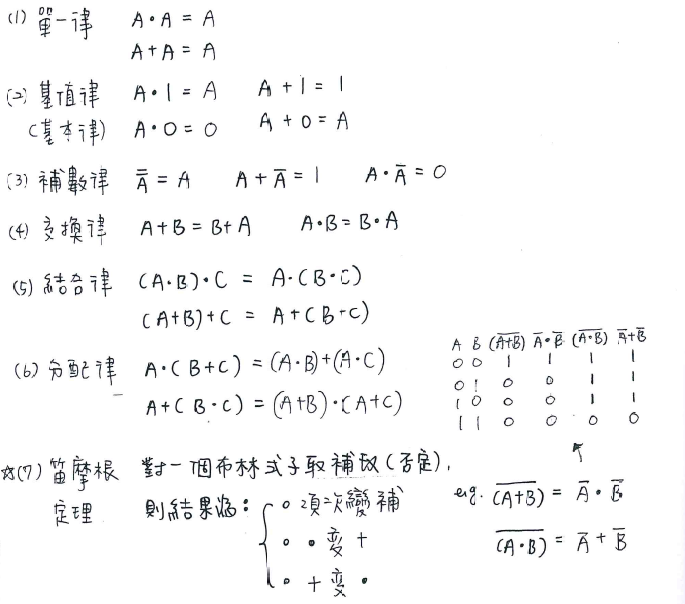 (1) 單一律 A·A = A
A+A = A
(2) 基值律 A·1 = A A+1 = 1
(基本律) A·0 = 0 A+0 = A
(3) 補數律 A̿ = A A+A̅ = 1 A·A̅ = 0
(4) 交換律 A+B = B+A A·B = B·A
(5) 結合律 (A·B)·C = A·(B·C)
(A+B)+C = A+(B+C)
(6) 分配律 A·(B+C) = (A·B)+(A·C)
A+(B·C) = (A+B)·(A+C)
A B (A̅+̅B̅) A̅·B̅ (A̅·̅B̅) A̅+B̅
0 0 1 1 1 1
0 1 0 0 1 1
1 0 0 0 1 1
1 1 0 0 0 0
☆(7) 笛摩根 對一個布林式子取補數(否定),
定理 則結果為: 。項次變補
。· 変 +
。+ 変 ·
e.g. (A̅+̅B̅) = A̅·B̅
(A̅·̅B̅) = A̅+B̅